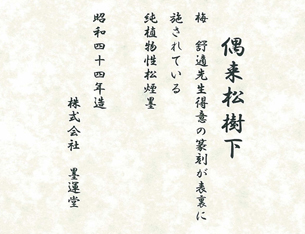 偶来松樹下
梅 舒適先生得意の篆刻が表裏に
施されている
純植物性松煙墨
昭和四十四年造
株式会社 墨運堂